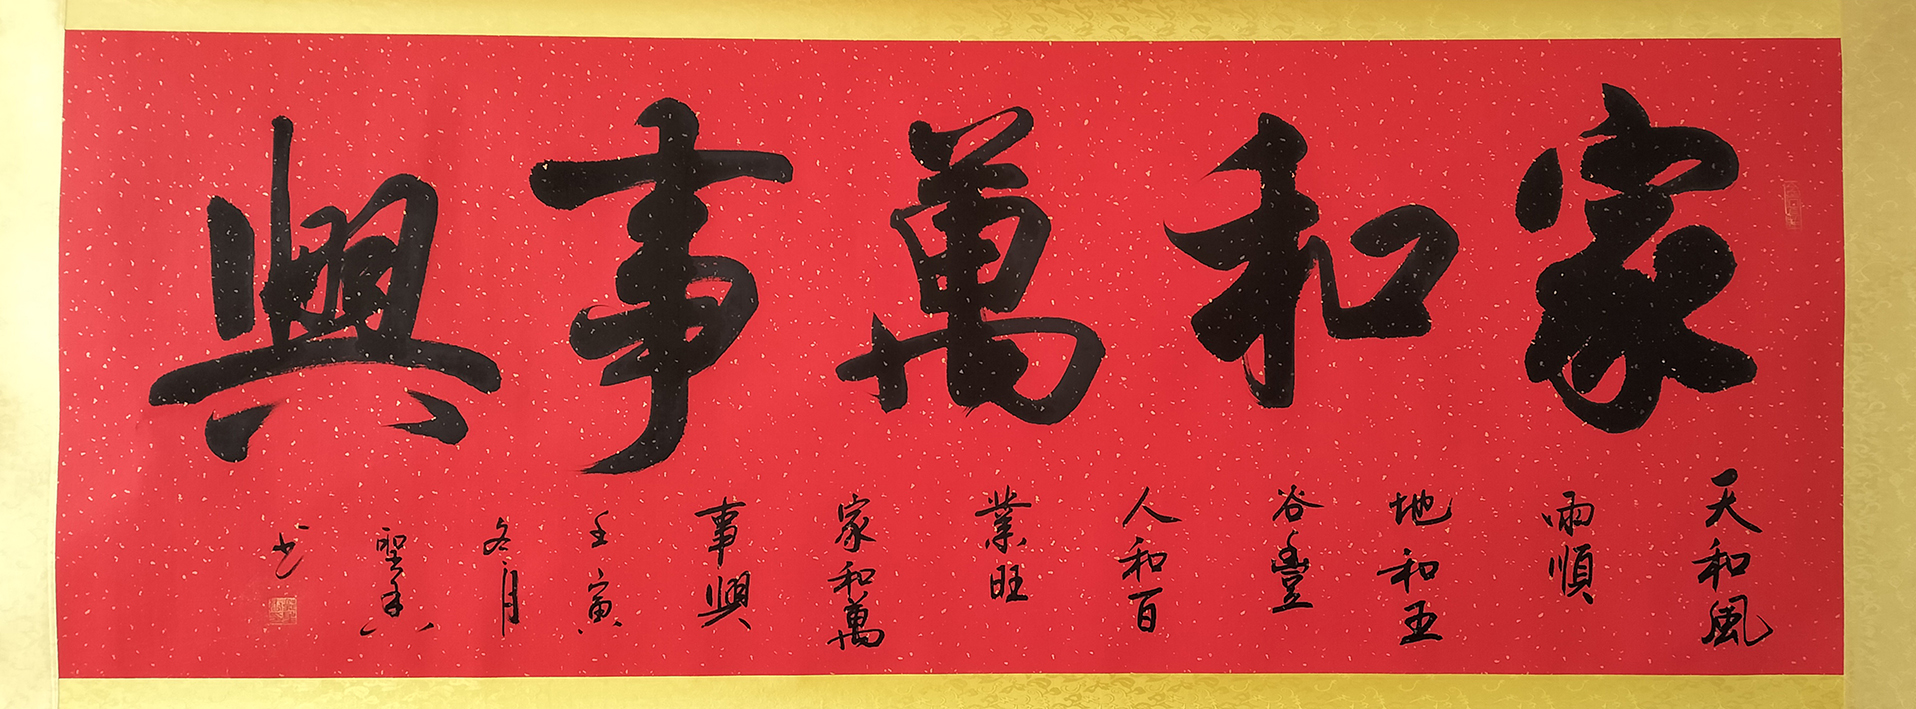 家和萬事興
天和風
雨順
地和五
谷豐
人和百
業旺
家和萬
事興
壬寅
冬月
聖
书